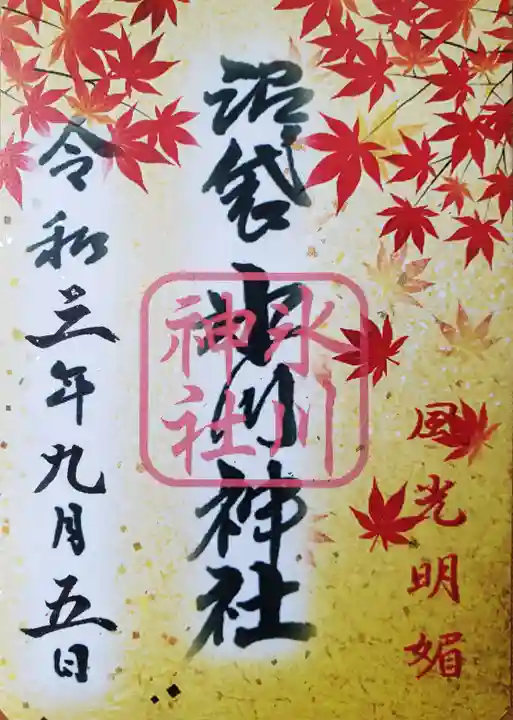 風光明媚
沼袋氷川神社
氷川
神社
令和三年九月五日